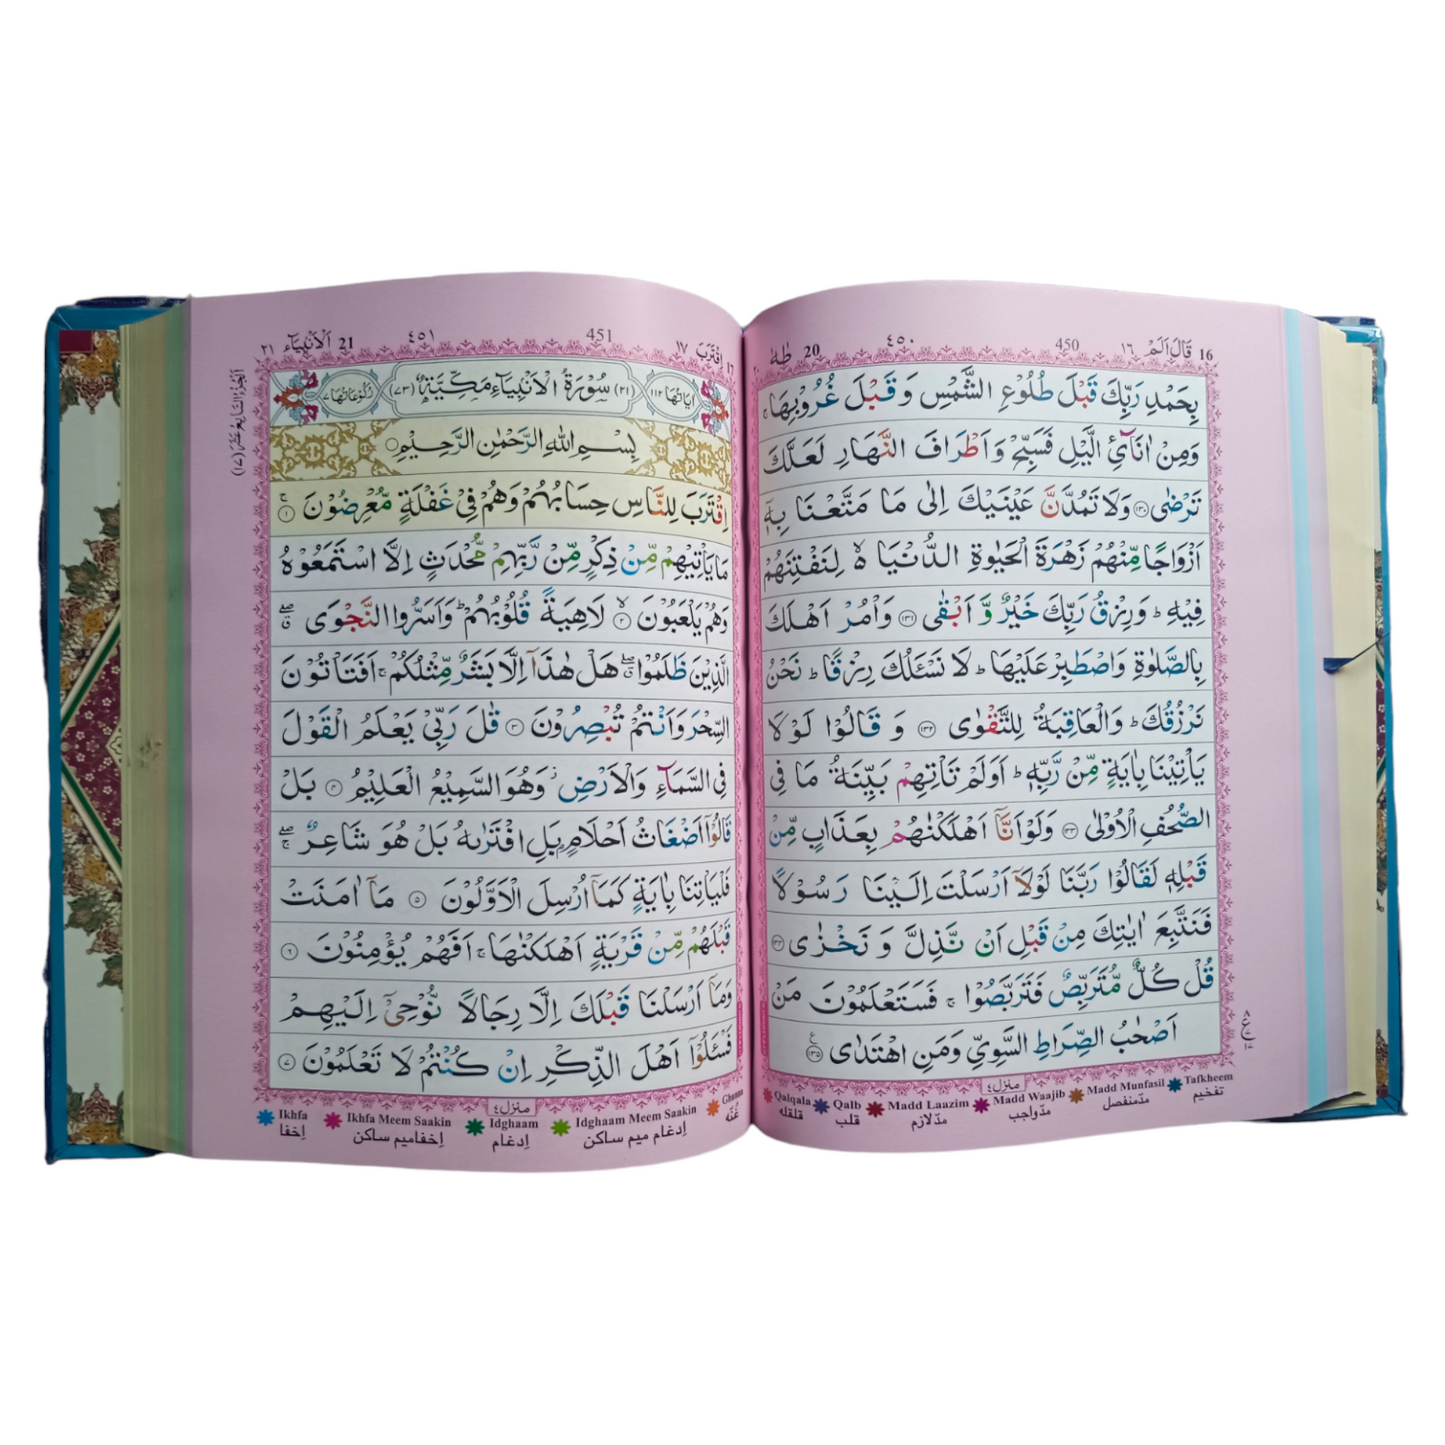 16 قَالَ اَلَمْ ١٦ 450 ٤٥٠ 20 طٰهٰ ٢٠
بِحَمْدِ رَبِّكَ قَبْلَ طُلُوْعِ الشَّمْسِ وَ قَبْلَ غُرُوْبِهَا ۚ
وَمِنْ اٰنَآئِ الَّيْلِ فَسَبِّحْ وَ اَطْرَافَ النَّهَارِ لَعَلَّكَ
تَرْضٰى ﴿١٣٠﴾ وَلَا تَمُدَّنَّ عَيْنَيْكَ اِلٰى مَا مَتَّعْنَا بِهٖٓ
اَزْوَاجًا مِّنْهُمْ زَهْرَةَ الْحَيٰوةِ الدُّنْيَا ۙ لِنَفْتِنَهُمْ
فِيْهِ ؕ وَ رِزْقُ رَبِّكَ خَيْرٌ وَّ اَبْقٰى ﴿١٣١﴾ وَاْمُرْ اَهْلَكَ
بِالصَّلٰوةِ وَاصْطَبِرْ عَلَيْهَا ؕ لَا نَسْئَلُكَ رِزْقًا ؕ نَحْنُ
نَرْزُقُكَ ؕ وَالْعَاقِبَةُ لِلتَّقْوٰى ﴿١٣٢﴾ وَ قَالُوْا لَوْ لَا
يَاْتِيْنَا بِاٰيَةٍ مِّنْ رَّبِّهٖ ؕ اَوَلَمْ تَاْتِهِمْ بَيِّنَةُ مَا فِى
الصُّحُفِ الْاُوْلٰى ﴿١٣٣﴾ وَلَوْ اَنَّآ اَهْلَكْنٰهُمْ بِعَذَابٍ مِّنْ
قَبْلِهٖ لَقَالُوْا رَبَّنَا لَوْلَآ اَرْسَلْتَ اِلَيْنَا رَسُوْلًا
فَنَتَّبِعَ اٰيٰتِكَ مِنْ قَبْلِ اَنْ نَّذِلَّ وَ نَخْزٰى ﴿١٣٤﴾
قُلْ كُلٌّ مُّتَرَبِّصٌ فَتَرَبَّصُوْا ۚ فَسَتَعْلَمُوْنَ مَنْ
اَصْحٰبُ الصِّرَاطِ السَّوِىِّ وَمَنِ اهْتَدٰى ﴿١٣٥﴾
منزل ٤
Qalqala Qalb Madd Laazim Madd Waajib Madd Munfasil Tafkheem
قلقله قلب مدّ لازم مدّ واجب مدّ منفصل تفخيم
١٧ اِقْتَرَبَ ١٧ 451 ٤٥١ 21 اَلْاَنْبِيَآء ٢١
اٰيَاتُهَا ١١٢ (٢١) سُوْرَةُ الْاَنْبِيَآءِ مَكِّيَّةٌ (٧٣) رُكُوْعَاتُهَا ٧
بِسْمِ اللهِ الرَّحْمٰنِ الرَّحِيْمِ
اِقْتَرَبَ لِلنَّاسِ حِسَابُهُمْ وَهُمْ فِيْ غَفْلَةٍ مُّعْرِضُوْنَ ﴿١﴾
مَا يَاْتِيْهِمْ مِّنْ ذِكْرٍ مِّنْ رَّبِّهِمْ مُّحْدَثٍ اِلَّا اسْتَمَعُوْهُ
وَهُمْ يَلْعَبُوْنَ ﴿٢﴾ لَاهِيَةً قُلُوْبُهُمْ ؕ وَاَسَرُّوا النَّجْوَى
الَّذِيْنَ ظَلَمُوْا هَلْ هٰذَآ اِلَّا بَشَرٌ مِّثْلُكُمْ ۚ اَفَتَاْتُوْنَ
السِّحْرَ وَاَنْتُمْ تُبْصِرُوْنَ ﴿٣﴾ قٰلَ رَبِّيْ يَعْلَمُ الْقَوْلَ
فِى السَّمَآءِ وَالْاَرْضِ وَهُوَ السَّمِيْعُ الْعَلِيْمُ ﴿٤﴾ بَلْ
قَالُوْٓا اَضْغَاثُ اَحْلَامٍ بَلِ افْتَرٰىهُ بَلْ هُوَ شَاعِرٌ
فَلْيَاْتِنَا بِاٰيَةٍ كَمَآ اُرْسِلَ الْاَوَّلُوْنَ ﴿٥﴾ مَآ اٰمَنَتْ
قَبْلَهُمْ مِّنْ قَرْيَةٍ اَهْلَكْنٰهَا ۚ اَفَهُمْ يُؤْمِنُوْنَ ﴿٦﴾
وَمَآ اَرْسَلْنَا قَبْلَكَ اِلَّا رِجَالًا نُّوْحِيْٓ اِلَيْهِمْ
فَسْئَلُوْٓا اَهْلَ الذِّكْرِ اِنْ كُنْتُمْ لَا تَعْلَمُوْنَ ﴿٧﴾
منزل ٤
Ikhfa Ikhfa Meem Saakin Idghaam Idghaam Meem Saakin Ghunna
اِخفا اِخفاميم ساكن اِدغام اِدغام ميم ساكن غُنّه
اَلْجُزْءُ السَّابِعَ عَشَرَ (١٧)